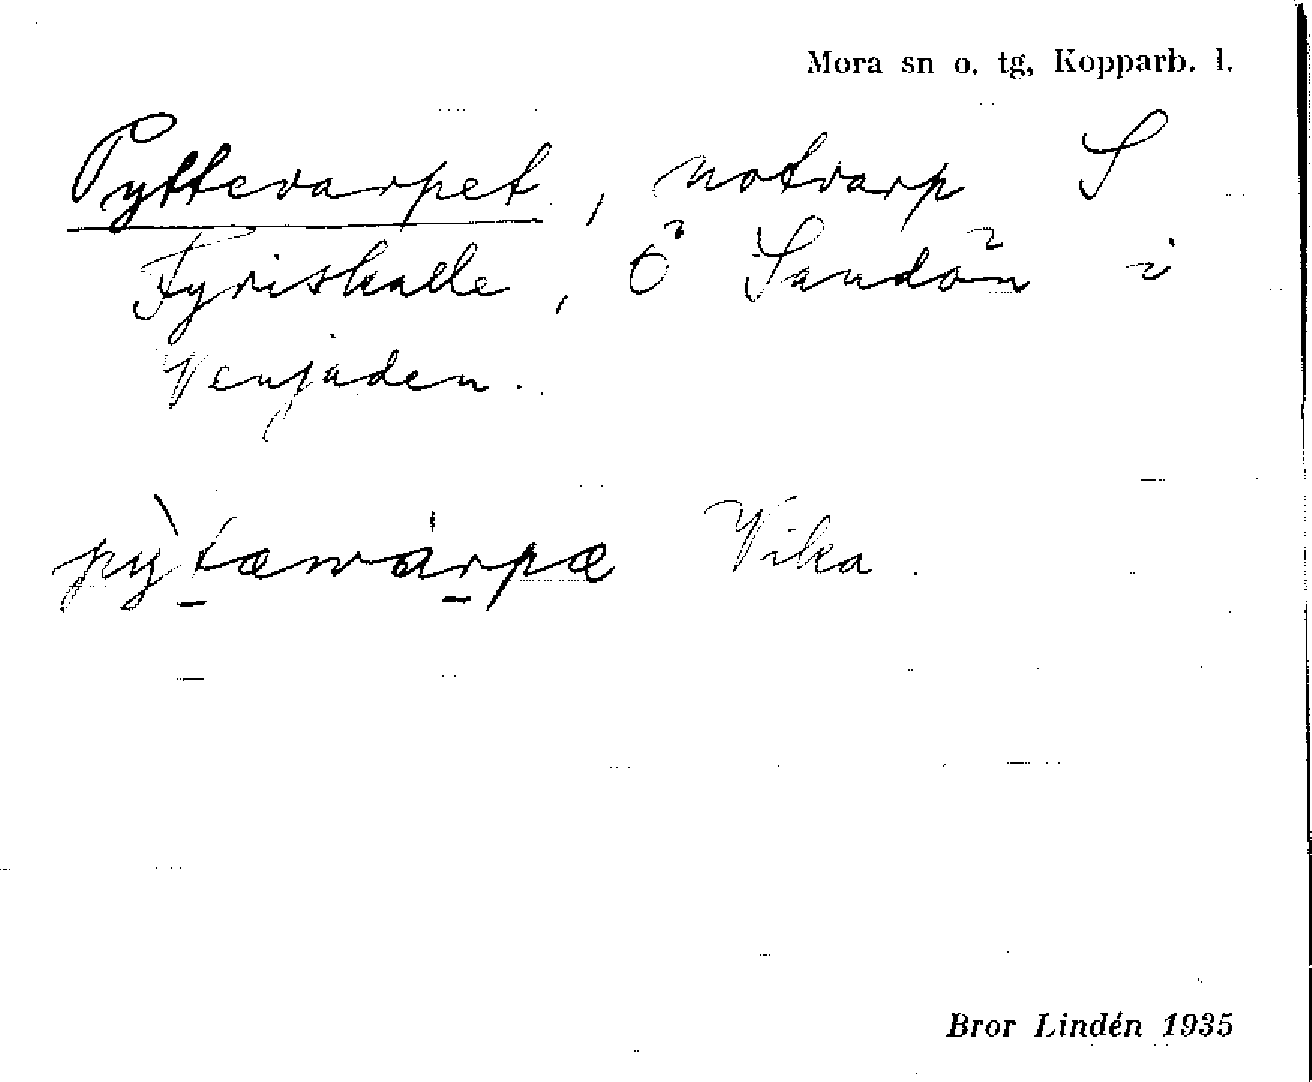 Mora sn o. tg, Kopparb. l.
Pyttevarpet, notvarp S
Fyriskalle, Ö Sandön i
Venjaden.
pỳtæwarpæ Vika.
Bror Lindén 1935